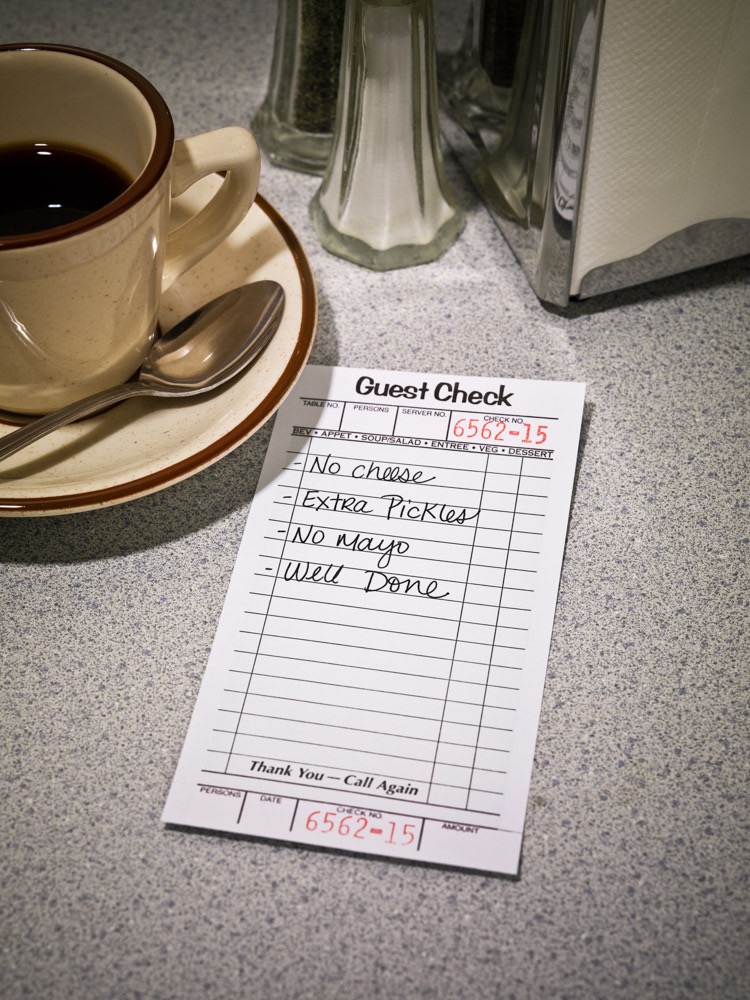 Guest Check
TABLE NO. PERSONS SERVER NO. CHECK NO.
6562-15
BEV • APPET • SOUP/SALAD • ENTREE • VEG • DESSERT
- No cheese
- Extra Pickles
- No mayo
- Well Done
Thank You — Call Again
PERSONS DATE CHECK NO. AMOUNT
6562-15